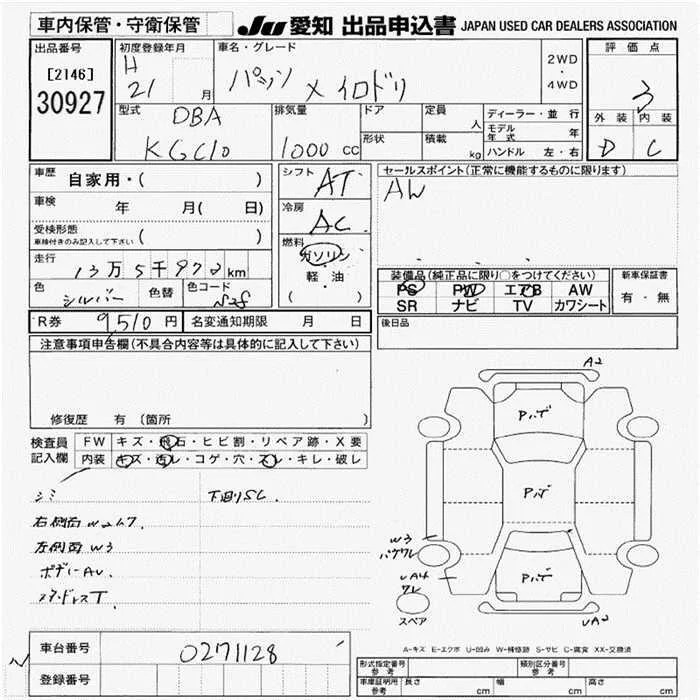 車内保管・守衛保管
JU 愛知 出品申込書 JAPAN USED CAR DEALERS ASSOCIATION
出品番号
[2146]
30927
初度登録年月
H
21 月
車名・グレード
パッソ × イロドリ
2WD
・
4WD
評価点
3
外装 内装
D C
型式
DBA
KGC10
排気量
1000 cc
ドア
形状
定員
人
積載
kg
ディーラー・並行
モデル年式 年
ハンドル 左・右
車歴
自家用・( )
車検
年 月( 日)
受検形態
車検付きのみ記入して下さい ( )
走行
13万5千972km
色
シルバー
色替
色コード
S28
シフト
AT
冷房
AC
燃料
ガソリン
・
軽・油
( )
セールスポイント(正常に機能するものに限ります)
AW
装備品(純正品に限り○をつけてください)
PS PW エアB AW
SR ナビ TV カワシート
新車保証書
有・無
後日品
R券 9,510円
名変通知期限 月 日
注意事項申告欄(不具合内容等は具体的に記入して下さい)
修復歴 有 (箇所 )
検査員
記入欄
FW キズ・飛石・ヒビ割・リペア跡・X要
内装 キズ・汚レ・コゲ・穴・スレ・キレ・破レ
シミ
下廻りSC.
右側面W247.
左側面W3
ボディーAU.
スタッドレスT.
A2
Pハゲ
Pハゲ
Pハゲ
W3
UA4
UA2
スペア
A-キズ E-エクボ U-凹み W-補修跡 S-サビ C-腐食 XX-交換済
車台番号
0271128
登録番号
型式指定番号
参考
類別区分番号
参考
車庫証明用
参考
長さ cm
幅 cm
高さ cm